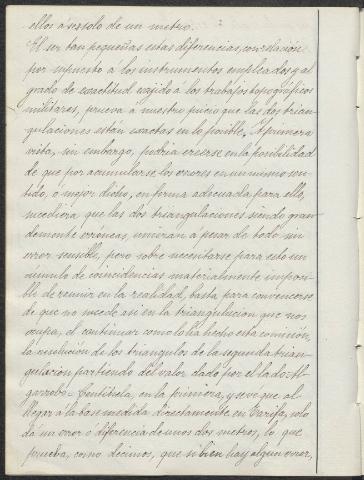 ellos a ser solo de un metro.
El ser tan pequeñas estas diferencias, con relación
por supuesto a los instrumentos empleados y al
grado de exactitud exijido a los trabajos topográficos
militares, prueva á nuestro juicio que las dos trian-
gulaciones están exactas en lo posible. A primera
vista, sin embargo, podria creerse en la posibilidad
de que por acumularse los errores en un mismo sen-
tido, ó mejor dicho, en forma adecuada para ello,
sucediera que las dos triangulaciones siendo gran-
demente erróneas, unieran á pesar de todo sin
error sensible, pero sobre necesitarse para esto un
cúmulo de coincidencias materialmente imposi-
ble de reunir en la realidad, basta para convencerse
de que no sucede asi en la triangulacion que nos
ocupa, el continuar como lo ha hecho esta comisión,
la resolución de los triangulos de la segunda trian-
gulación partiendo del valor dado por el lado: Al-
garrobo - Centinela, en la primera, y se ve que al
llegar á la base medida directamente en Tarifa, solo
dá un error ó diferencia de unos dos metros, lo que
prueba, como decimos, que si bien hay algun error,